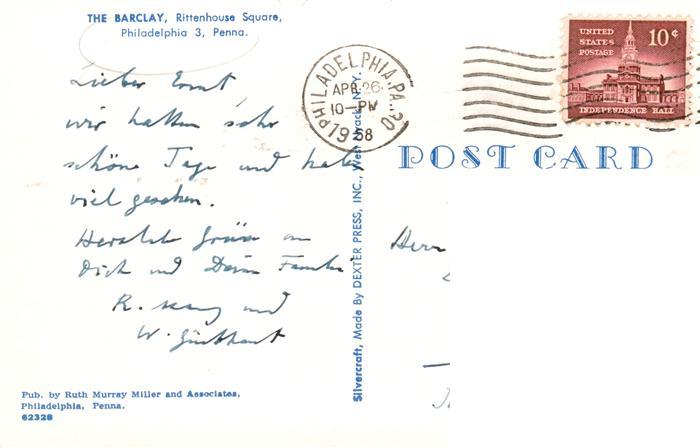 THE BARCLAY, Rittenhouse Square,
Philadelphia 3, Penna.
Lieber Ernst
wir hatten sehr
schöne Tage und haben
viel gesehen.
Herzliche Grüsse an
Dich und Deine Familie
R. und
W.
Pub. by Ruth Murray Miller and Associates,
Philadelphia, Penna.
62328
Silvercraft, Made By DEXTER PRESS, INC., West Nyack, N.Y.
PHILADELPHIA, PA.
APR 26
10-PM
1958
UNITED
STATES
POSTAGE
10¢
INDEPENDENCE HALL
POST CARD
Herr